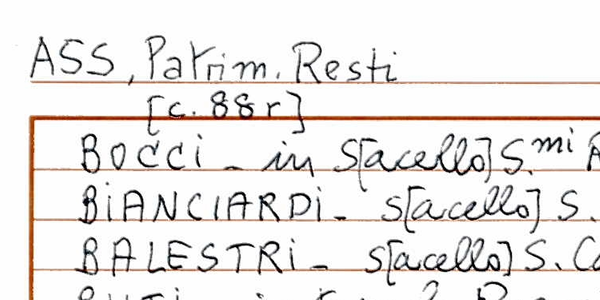 ASS, Patrim. Resti
[c. 88r]
BOCCi - in S[acello] S.mi
BiANCIARDi - s[acello] S.
BALESTRi - s[acello] S. Co